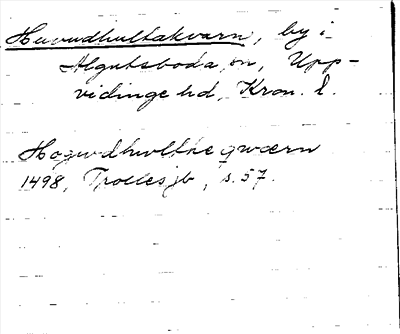 Huvudhultakvarn, by i
Algutsboda sn, Upp-
vidinge hd, Kron. l.
Hogwdhwltke qwærn
1498, Trolles jb, s. 57.